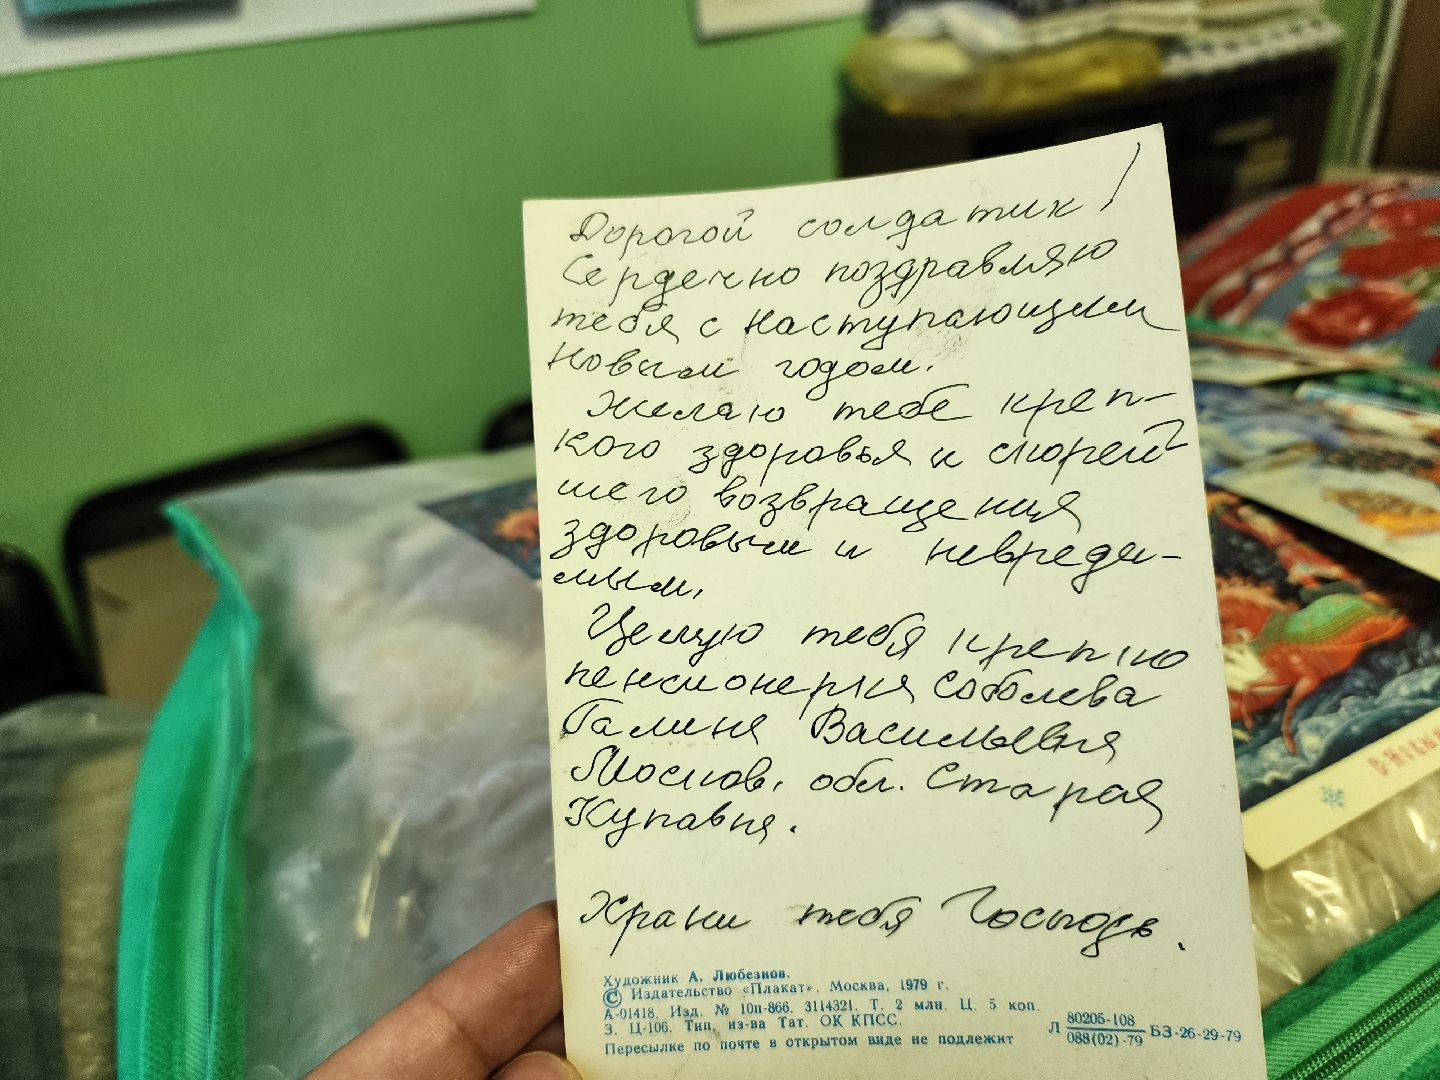 Дорогой солдатик!
Сердечно поздравляю
тебя с наступающим
Новым годом.
Желаю тебе креп-
кого здоровья и скорей
шего возвращения
здоровым и невреди-
мым.
Целую тебя крепко
пенсионерка Соболева
Галина Васильевна
Москов. обл. Старая
Купавна.
Храни тебя Господь.
Художник А. Любезнов.
© Издательство «Плакат». Москва, 1979 г.
А-01418. Изд. № 10п-866. 3114321. Т. 2 млн. Ц. 5 коп.
З. Ц-106. Тип. из-ва Тат. ОК КПСС.
Л 80205-108 / 088(02)-79 БЗ-26-29-79
Пересылке по почте в открытом виде не подлежит